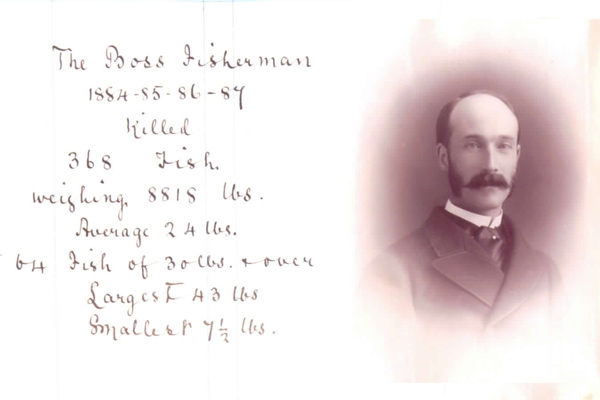 The Boss Fisherman
1884-85-86-87
Killed
368 Fish.
weighing 8818 lbs.
Average 24 lbs.
64 Fish of 30 lbs. & over
Largest 43 lbs
Smallest 7½ lbs.